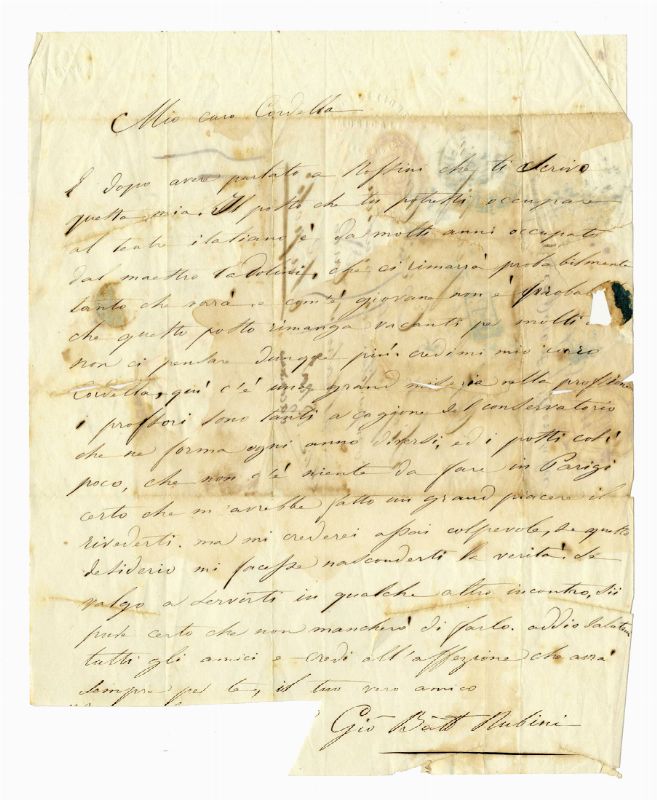 Mio caro Cordella
È dopo aver parlato a Rossini che ti scrivo
questa mia. Il posto che tu potresti occupare
al teatro italiano è da molti anni occupato
dal maestro Tadolini, che ci rimarrà probabilmente
tanto che vivrà, e com'è giovane non è proba
che questo posto rimanga vacante per molti
non ci pensare dunque più. credimi mio caro
Cordella, qui c'è una grand miseria nella professione
i professori sono tanti a cagione del conservatorio
che ne forma ogni anno diversi, ed i posti così
poco, che non c'è niente da fare in Parigi
certo che m'avrebbe fatto un grand piacere il
rivederti. ma mi crederei assai colpevole, se questo
desiderio mi facesse nasconderti la verità. Se
valgo a servirti in qualche altro incontro, sii
pure certo che non mancherò di farlo. addio saluta
tutti gli amici e credi all'affezione che avrà
sempre per te, il tuo vero amico
Gio Batt Rubini